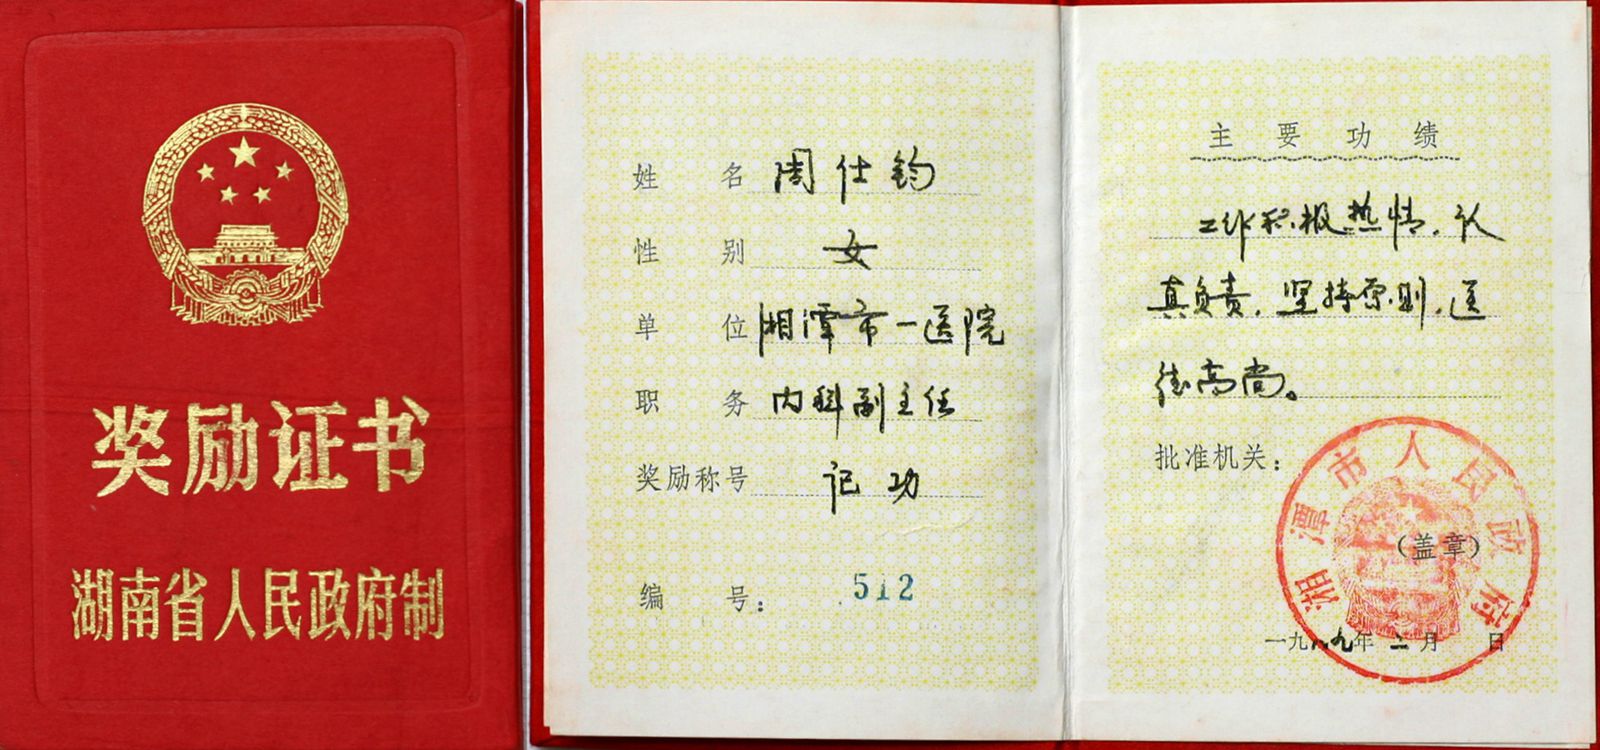 奖励证书
湖南省人民政府制
姓名 周仕钧
性别 女
单位 湘潭市一医院
职务 内科副主任
奖励称号 记功
编号: 512
主要功绩
工作积极热情,认
真负责,坚持原则,医
德高尚。
批准机关:
湘潭市人民政府
(盖章)
一九八九年二月 日